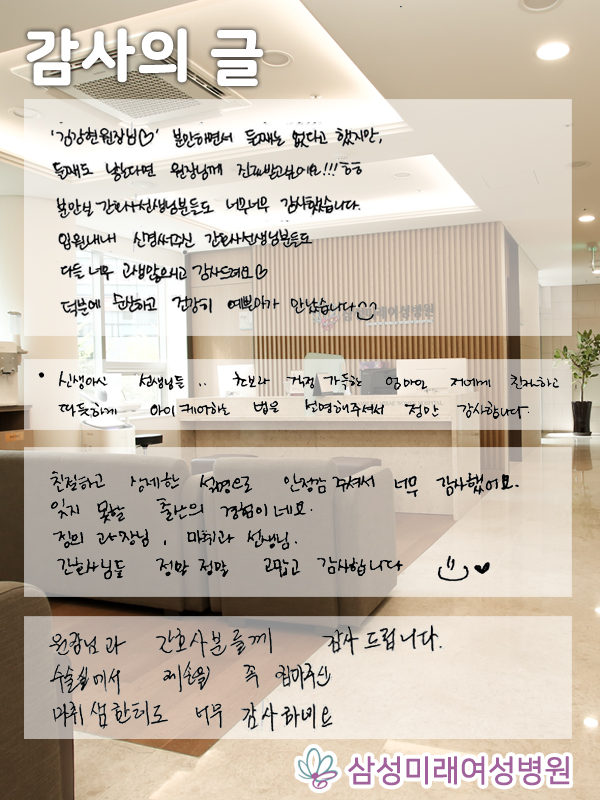 감사의 글
'김강현원장님♡' 분만하면서 둘째는 없다고 했지만,
둘째도 낳는다면 원장님께 진료받고싶어요!!! ㅎㅎ
분만실 간호사선생님분들도 너무너무 감사했습니다.
입원내내 신경써주신 간호사선생님분들도
다들 너무 고생많으시고 감사드려요♡
덕분에 순산하고 건강히 예쁜아가 만났습니다
• 신생아실 선생님들 .. 초보라 걱정 가득한 엄마인 저에게 친절하고
따뜻하게 아이 케어하는 법을 설명해주셔서 정말 감사합니다.
친절하고 상세한 설명으로 안정감 주셔서 너무 감사했어요.
잊지 못할 출산의 경험이네요.
과장님, 마취과 선생님.
간호사님들 정말 정말 고맙고 감사합니다
원장님과 간호사분들께 감사드립니다.
수술실에서 제손을 꼭 잡아주신
마취샘한테도 너무 감사하네요
미래여성병원
삼성미래여성병원